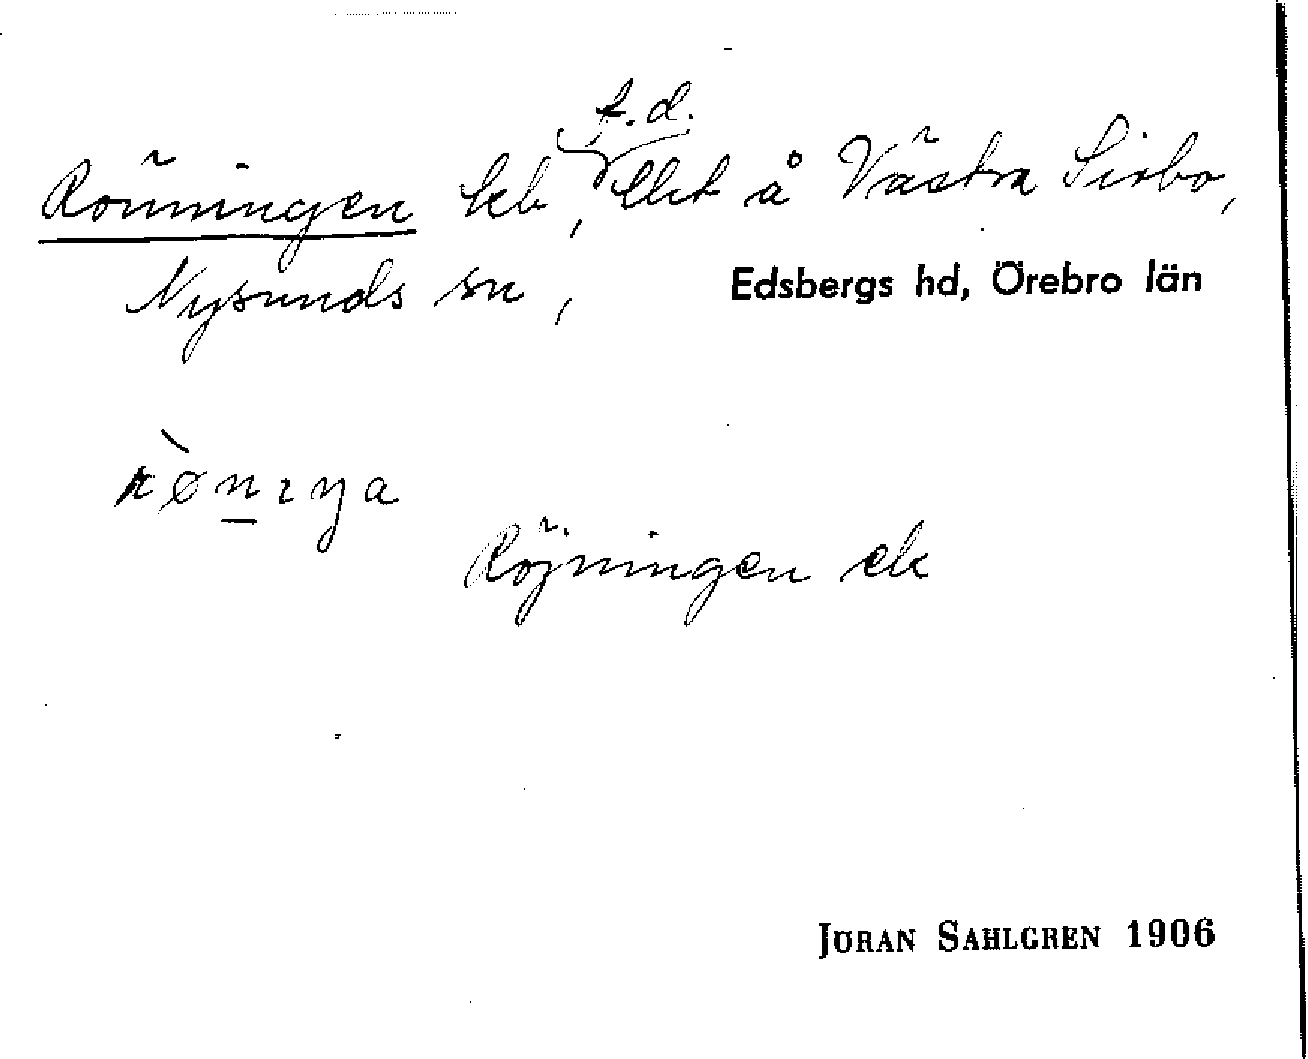 Rönningen lhb, f.d. lht å Västra Sirbo,
Nysunds sn, Edsbergs hd, Örebro län
Röjningen ek
JÖRAN SAHLGREN 1906